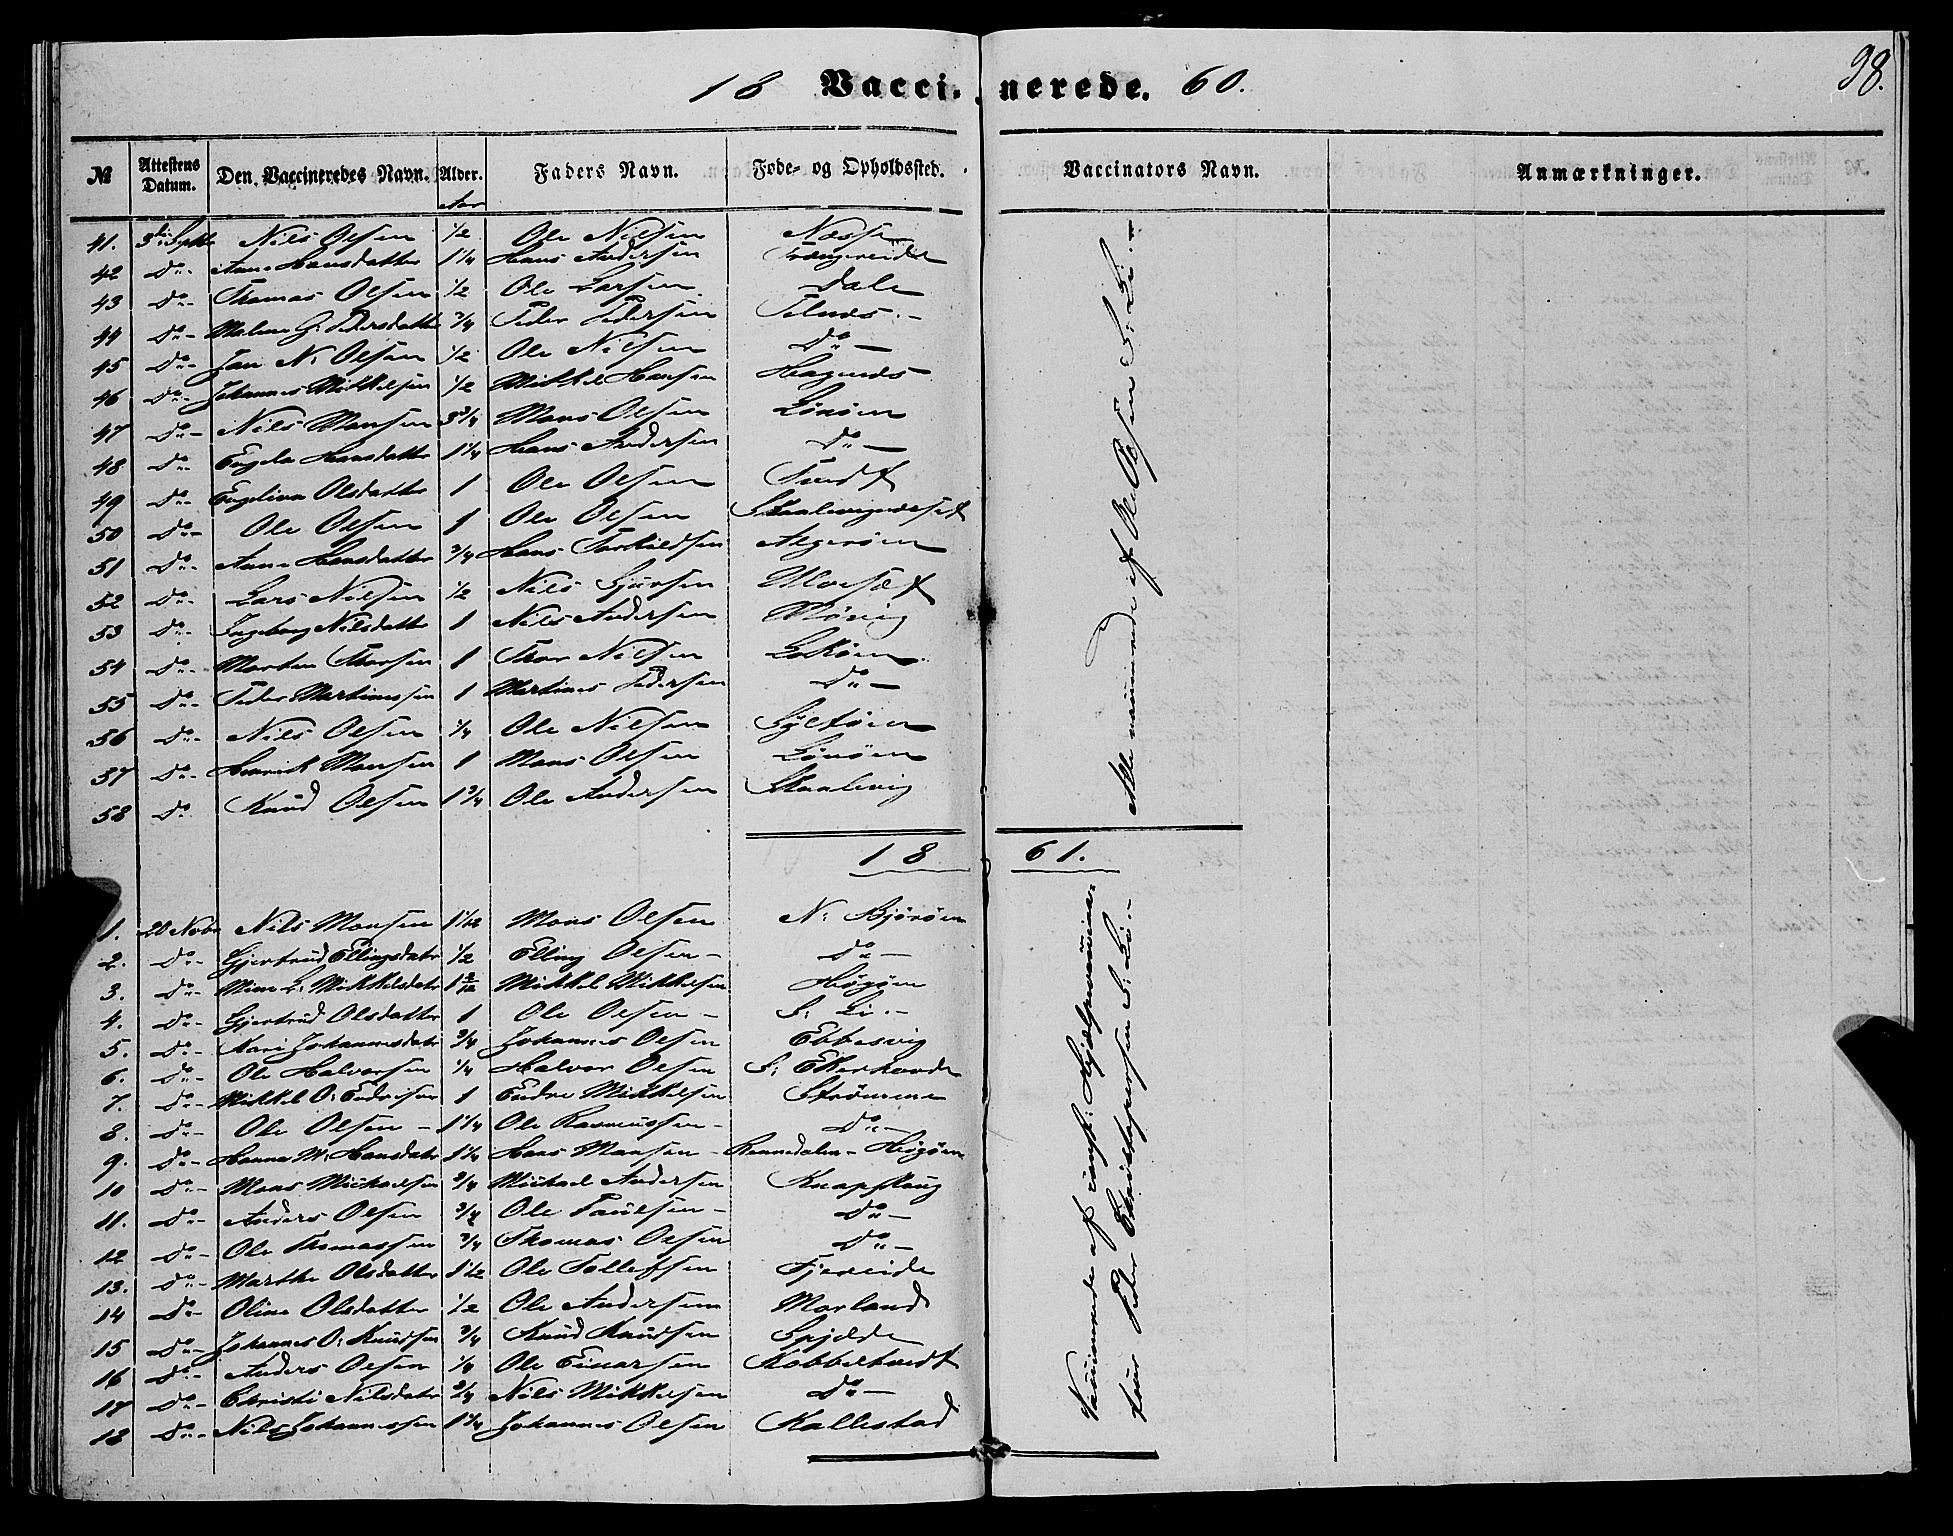 98.
18 Vaccinerede. 60.
№ Attestens Datum. Den Vaccineredes Navn. Alder. Faders Navn. Føde- og Opholdssted. Vaccinators Navn. Anmærkninger.
Aar
41. 3die Septbr Nils Olsen 1/2 Ole Nilsen Næsse
42 Do- Anne Hansdatter 1 1/4 Hans Andersen Trængereidet
43 Do- Thomas Olsen 1/2 Ole Larsen Dale
44 Do- Malene G: Pedersdatter 3/4 Peder Pedersen Telnæs.-
45 Do- Jan N: Olsen 1/2 Ole Nilsen Do-
46 Do- Johannes Mikkelsen 1/2 Mikkel Hansen Hagenæs
47 Do- Nils Monsen 3 3/4 Mons Olsen Lønøen
48 Do- Engela Hansdatter 1 1/4 Hans Andersen Do-
49 Do- Engelina Olsdatter 1 Ole Olsen Tundt
50 Do- Ole Olsen 1 Ole Olsen
51 Do- Anne Hansdatter 3/4 Hans Torkildsen Algerøen
52 Do- Lars Nilsen 1/2 Nils Sjursen Ulvesæt
53 Do- Ingeborg Nilsdatter 1 Nils Andersen Møvig
54 Do- Morten Thorsen 1 Thor Nilsen Lokøen
55 Do- Peder Martinussen 1 Martinus Pedersen Do-
56 Do- Nils Olsen 1/4 Ole Nilsen Syltøen
57 Do- Henrick Monsen 1 Mons Olsen Lønøen
58 Do Knud Olsen 1 3/4 Ole Andersen Skaalevig
Alle vaccinerede af Ole Olsen S: Li.-
18 61.
1. 20 Novbr Nils Monsen 1 1/12 Mons Olsen N: Bjørøen
2. Do- Gjertrud Ellingsdatr 1/2 Elling Olsen - Do-
3. Do- Mikkelsdatr 1 2/12 Mikkel Mikkelsen Høgøen
4. Do- Gjertrud Olsdatter 1 Ole Olsen - S: Li.-
5. Do- Kari Johannesdatr 3/4 Johannes Olsen Ebbesvig
6. Do- Ole Halvorsen 1/4 Halvor Olsen S: Ekerhovde
7. Do- Mikkel O: Endresen 1 Endre Mikkelsen Strømme
8. Do- Ole Olsen - 1 1/4 Ole Rasmussen - Do-
9. Do- Hanna M: Hansdatr 1 1/4 Hans Monsen - Rennedalen - Høgøen
10 Do- Mons Michaelsen 3/4 Michael Andersen Knapskoug
11. Do- Anders Olsen 3/4 Ole Paulsen - Do-
12 Do- Ole Thomassen 3/4 Thomas Olsen Do-
13. Do- Marthe Olsdatter 1 1/2 Ole Tollefsen Fjereide
14 Do- Oline Olsdatter 1/2 Ole Andersen Morland
15 Do- Johannes O: Knudsen 3/4 Knud Knudsen Spjelde
16 Do- Anders Olsen 1/4 Ole Einarsen Kobbertvedt
17 Do- Christi Nilsdatr 3/4 Nils Mikkelsen Do-
18 Do- Nils Johannessen 1 1/4 Johannes Olsen Kallestad
Vaccinerede af Hjælpevaccina-
teur Peder Christophersen S: Li.-